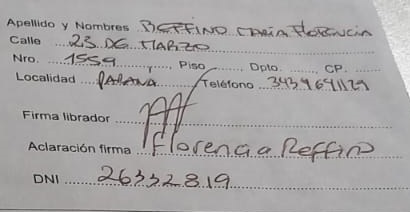 Apellido y Nombres BEFFINO MARIA Florencia
Calle 23 DE MARZO
Nro. 1559 Piso Dpto. CP.
Localidad PARANA Teléfono
Firma librador
Aclaración firma Florencia Beffino
DNI 26332819